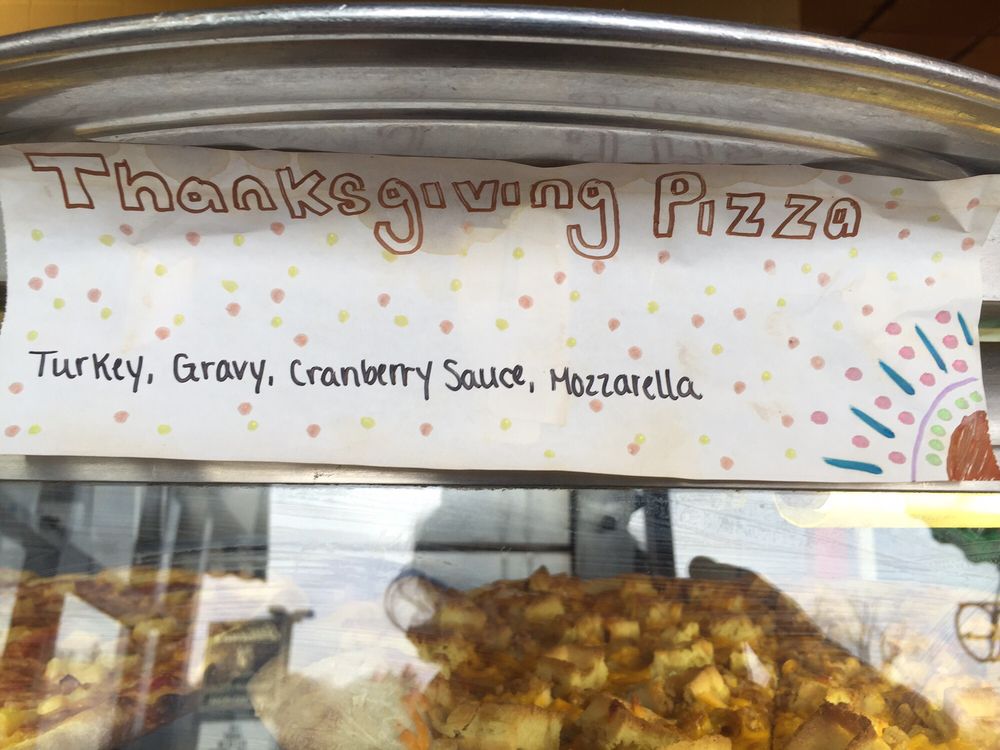 Thanksgiving Pizza
Turkey, Gravy, Cranberry Sauce, Mozzarella